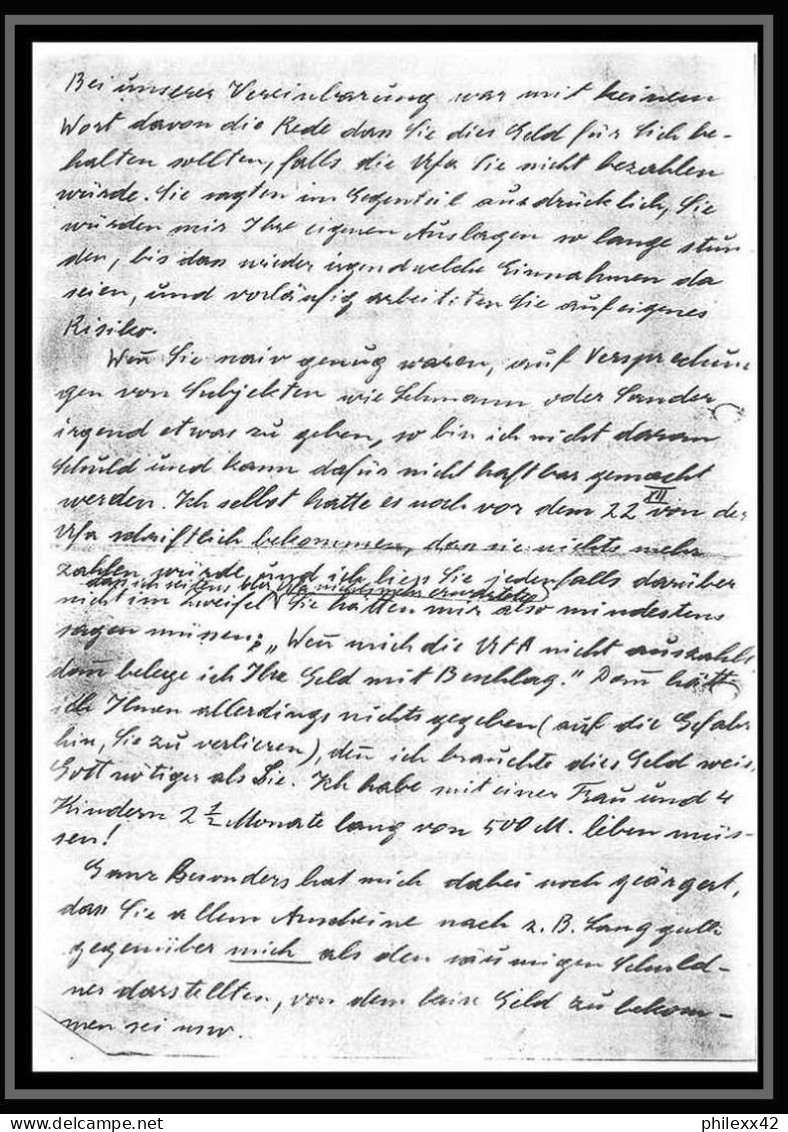 Bei unserer Vereinbarung war mit keinem
Wort davon die Rede dass Sie dies Geld für Sich be-
halten sollten, falls die Ufa Sie nicht bezahlen
würde. Sie sagten im Gegenteil ausdrücklich, Sie
würden mir Ihre eigenen Auslagen so lange stun
den, bis dass wieder irgendwelche Einnahmen da
seien, und vorläufig arbeiteten Sie auf eigenes
Risiko.
Weñ Sie naiv genug waren, auf Versprechun
gen von Subjekten wie Lehmann oder Sander
irgend etwas zu geben, so bin ich nicht daran
schuld und kann dafür nicht haftbar gemacht
werden. Ich selbst hatte es noch vor dem 22 XII von der
Ufa schriftlich bekommen, dass sie nichts mehr
zahlen würde und ich liess Sie jedenfalls darüber
dass ich seitens der Ufa nichts mehr erwartete
nicht im Zweifel Sie hätten mir also mindestens
sagen müssen: „Weñ mich die UfA nicht auszahlt
dañ belege ich Ihr Geld mit Beschlag." Dañ hätte
ich Ihnen allerdings nichts gegeben (auf die Gefahr
hin, Sie zu verlieren), deñ ich brauchte dies Geld weis
Gott nötiger als Sie. Ich habe mit einer Frau und 4
Kindern 2 1/2 Monate lang von 500 M. leben müs-
sen!
Ganz Besonders hat mich dabei noch geärgert,
dass Sie allem Anscheine nach z. B. Langgutt
gegenüber mich als den säumigen Schuld-
ner darstellten, von dem kein Geld zu bekom-
men sei usw.
delcampe.net
philexx42